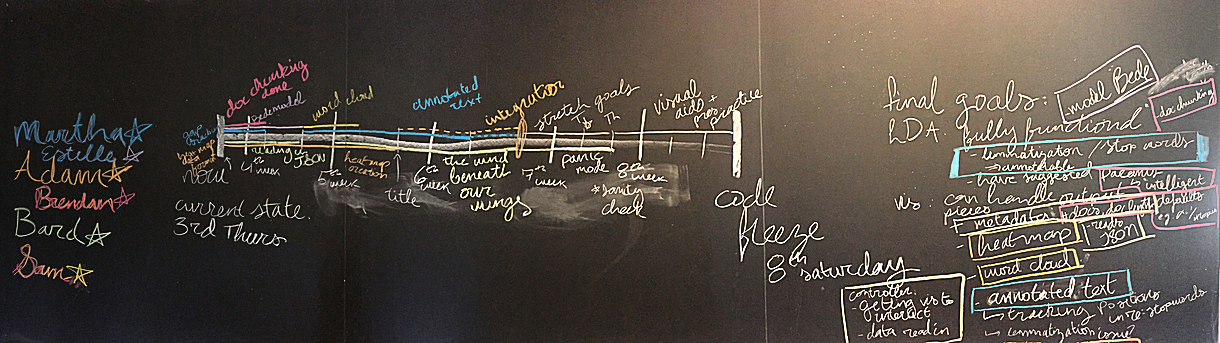 Martha
Estelle
Adam
Brendan
Bard
Sam
doc chunking
done
Bedemodel
word cloud
annotated
text
integration
stretch goals
visual
aids +
practice
now
4th
week
reading in
JSON
5th
week
heatmap
creation
title
6th
week
the wind
beneath
our
wings
7th
week
panic
mode
8th
week
*sanity
check
current state:
3rd Thurs
code
freeze
8th saturday
final goals:
model Bede
doc chunking
LDA: fully functional
- lemmatization / stop words
- have suggested
intelligent
defaults
Vis: can handle output
pieces
+ metadata:
- heat map
- reads
JSON
- word cloud
- annotated text
↳ tracking positions
in re: stopwords
↳ lemmatization
controller:
- getting vis to
interact
- data read in